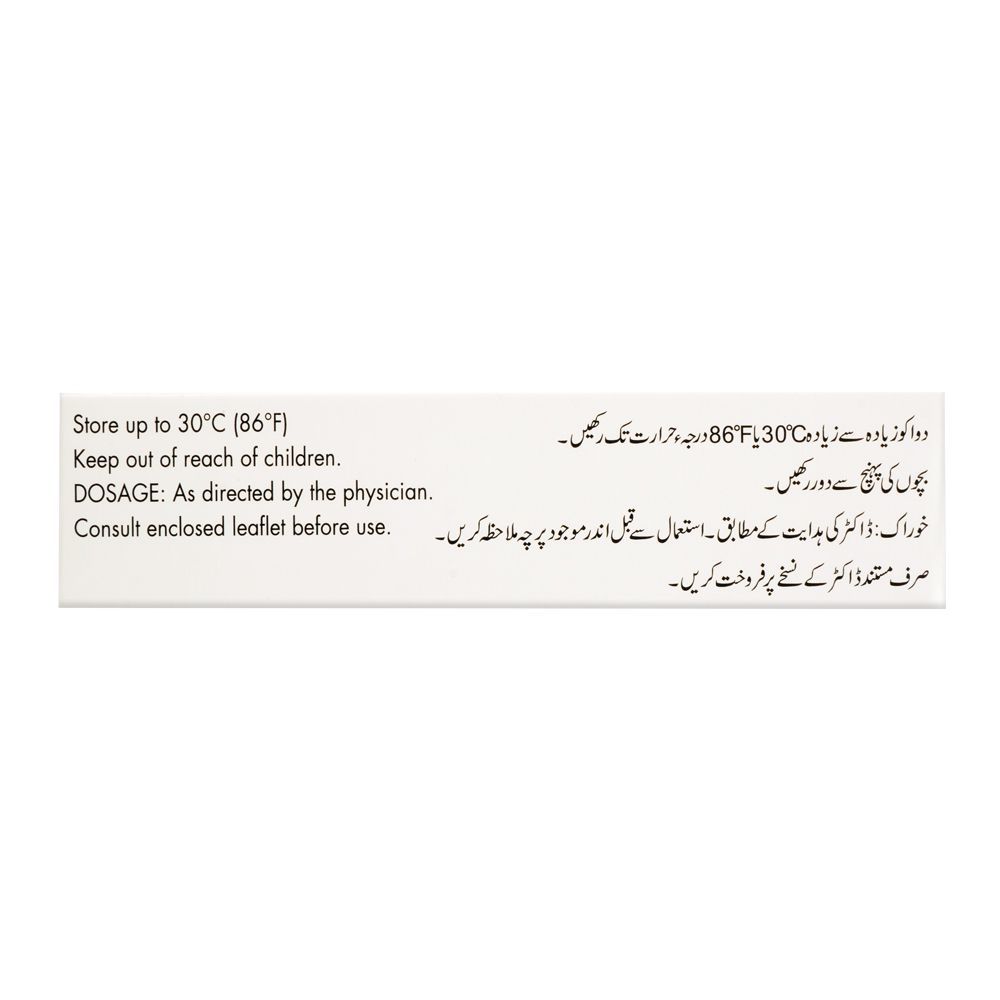 Store up to 30°C (86°F)
Keep out of reach of children.
DOSAGE: As directed by the physician.
Consult enclosed leaflet before use.
دوا کو زیادہ سے زیادہ 30°C یا 86°F درجہء حرارت تک رکھیں۔
بچوں کی پہنچ سے دور رکھیں۔
خوراک: ڈاکٹر کی ہدایت کے مطابق۔ استعمال سے قبل اندر موجود پرچہ ملاحظہ کریں۔
صرف مستند ڈاکٹر کے نسخے پر فروخت کریں۔